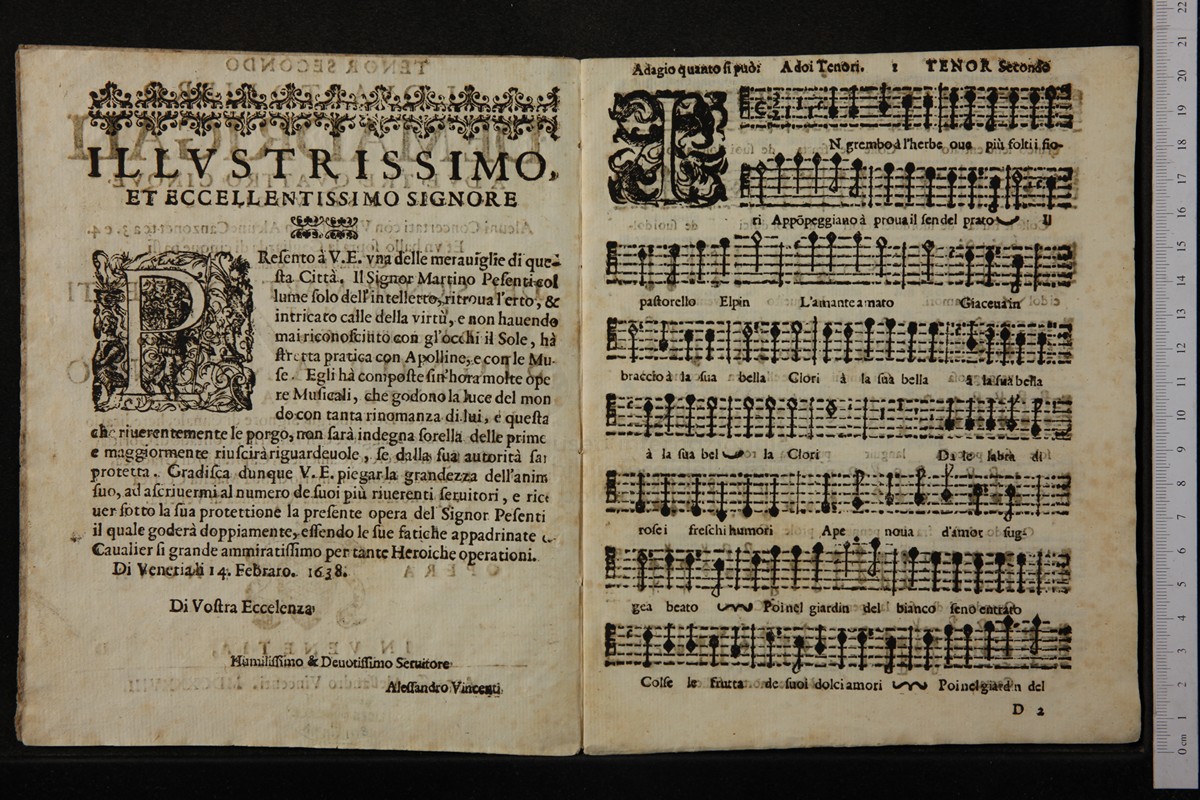 ILLVSTRISSIMO,
ET ECCELLENTISSIMO SIGNORE
PResento à V.E. vna delle merauiglie di que-
sta Città. Il Signor Martino Pesenti col
lume solo dell'intelletto, ritroua l'erto, &
intricato calle della virtù, e non hauendo
mai riconosciuto con gl'occhi il Sole, hà
stretta pratica con Apolline, e con le Mu-
se. Egli hà composte sin'hora molte ope
re Musicali, che godono la luce del mon
do con tanta rinomanza di lui, e questa
che riuerentemente le porgo, non sarà indegna sorella delle prime
e maggiormente riuscirà riguardeuole, se dalla sua autorità sar
protetta. Gradisca dunque V.E. piegar la grandezza dell'anim
suo, ad ascriuermi al numero de suoi più riuerenti seruitori, e rice
uer sotto la sua protettione la presente opera del Signor Pesenti
il quale goderà doppiamente, essendo le sue fatiche appadrinate
Caualier sì grande ammiratissimo per tante Heroiche operationi.
Di Venetia li 14. Febraro. 1638.
Di Vostra Eccelenza
Humilissimo & Deuotissimo Seruitore
Alessandro Vincenti
Adagio quanto si può: A doi Tenori. 1 TENOR Secondo
IN grembo à l'herbe oue più folti i fio-
ri Appōpeggiano à proua il sen del prato Il
pastorello Elpin L'amante amato Giaceua in
braccio à la sua bella Clori à la sua bella à la sua bella
à la sua bel la Clori Da le labra di
rose i freschi humori Ape noua d'amor sug-
gea beato Poi nel giardin del bianco seno entrato
Colse le frutta de suoi dolci amori Poi nel giardin del
D 2